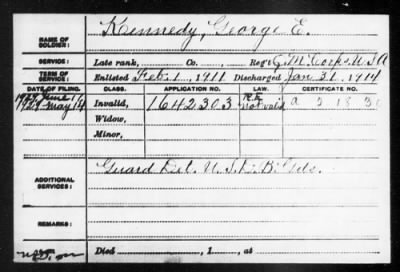 NAME OF SOLDIER: Kennedy, George E.
SERVICE: Late rank, Co. Reg't Q.M. Corps U.S.A
TERM OF SERVICE: Enlisted Feb. 1, 1911 Discharged Jan. 31, 1914
DATE OF FILING. CLASS. APPLICATION NO. LAW. CERTIFICATE NO.
1929 May 14 Invalid, 1642303 not valid
Widow,
Minor,
ADDITIONAL SERVICES: Guard Det. U.S.D.B. Gds.
REMARKS:
Died , 1 , at